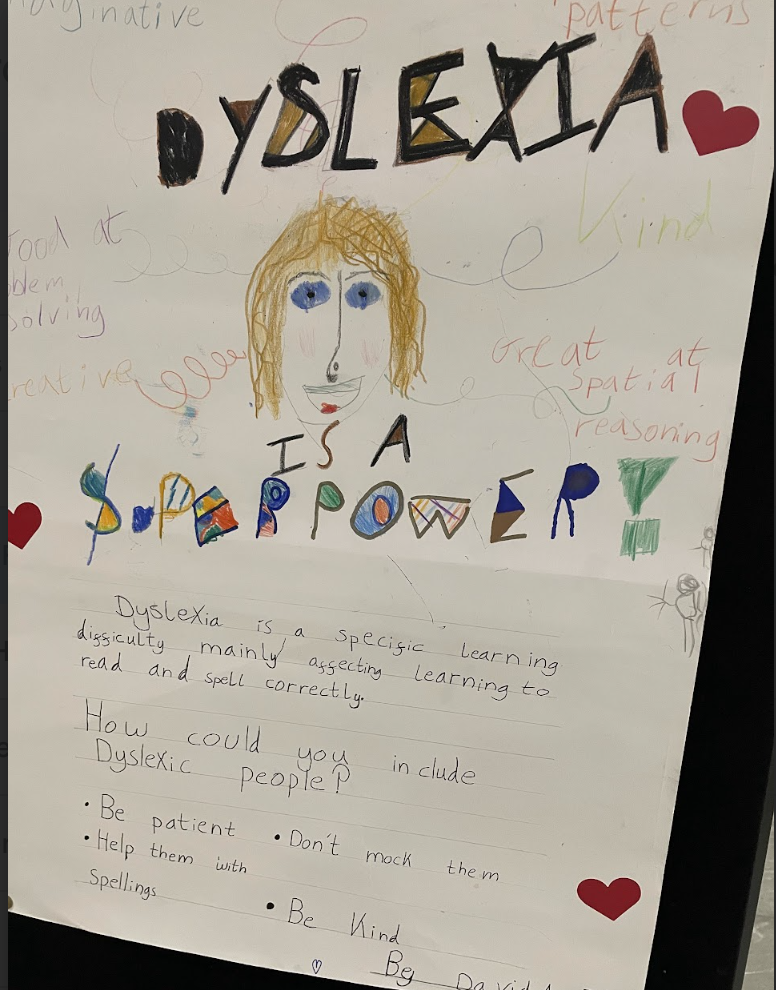 patterns
DYSLEXIA
Kind
Good at
solving
Great at
spatial
reasoning
IS A
SUPERPOWER!
Dyslexia is a specific learning
difficulty mainly affecting learning to
read and spell correctly.
How could you include
Dyslexic people?
• Be patient • Don't mock them
• Help them with
Spellings
• Be Kind
By David